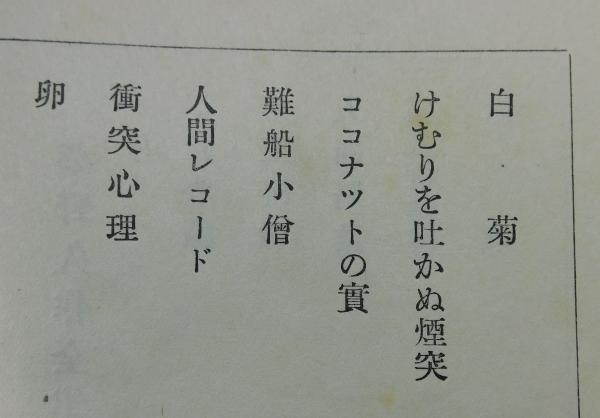 白菊
けむりを吐かぬ煙突
ココナットの實
難船小僧
人間レコード
衝突心理
卵